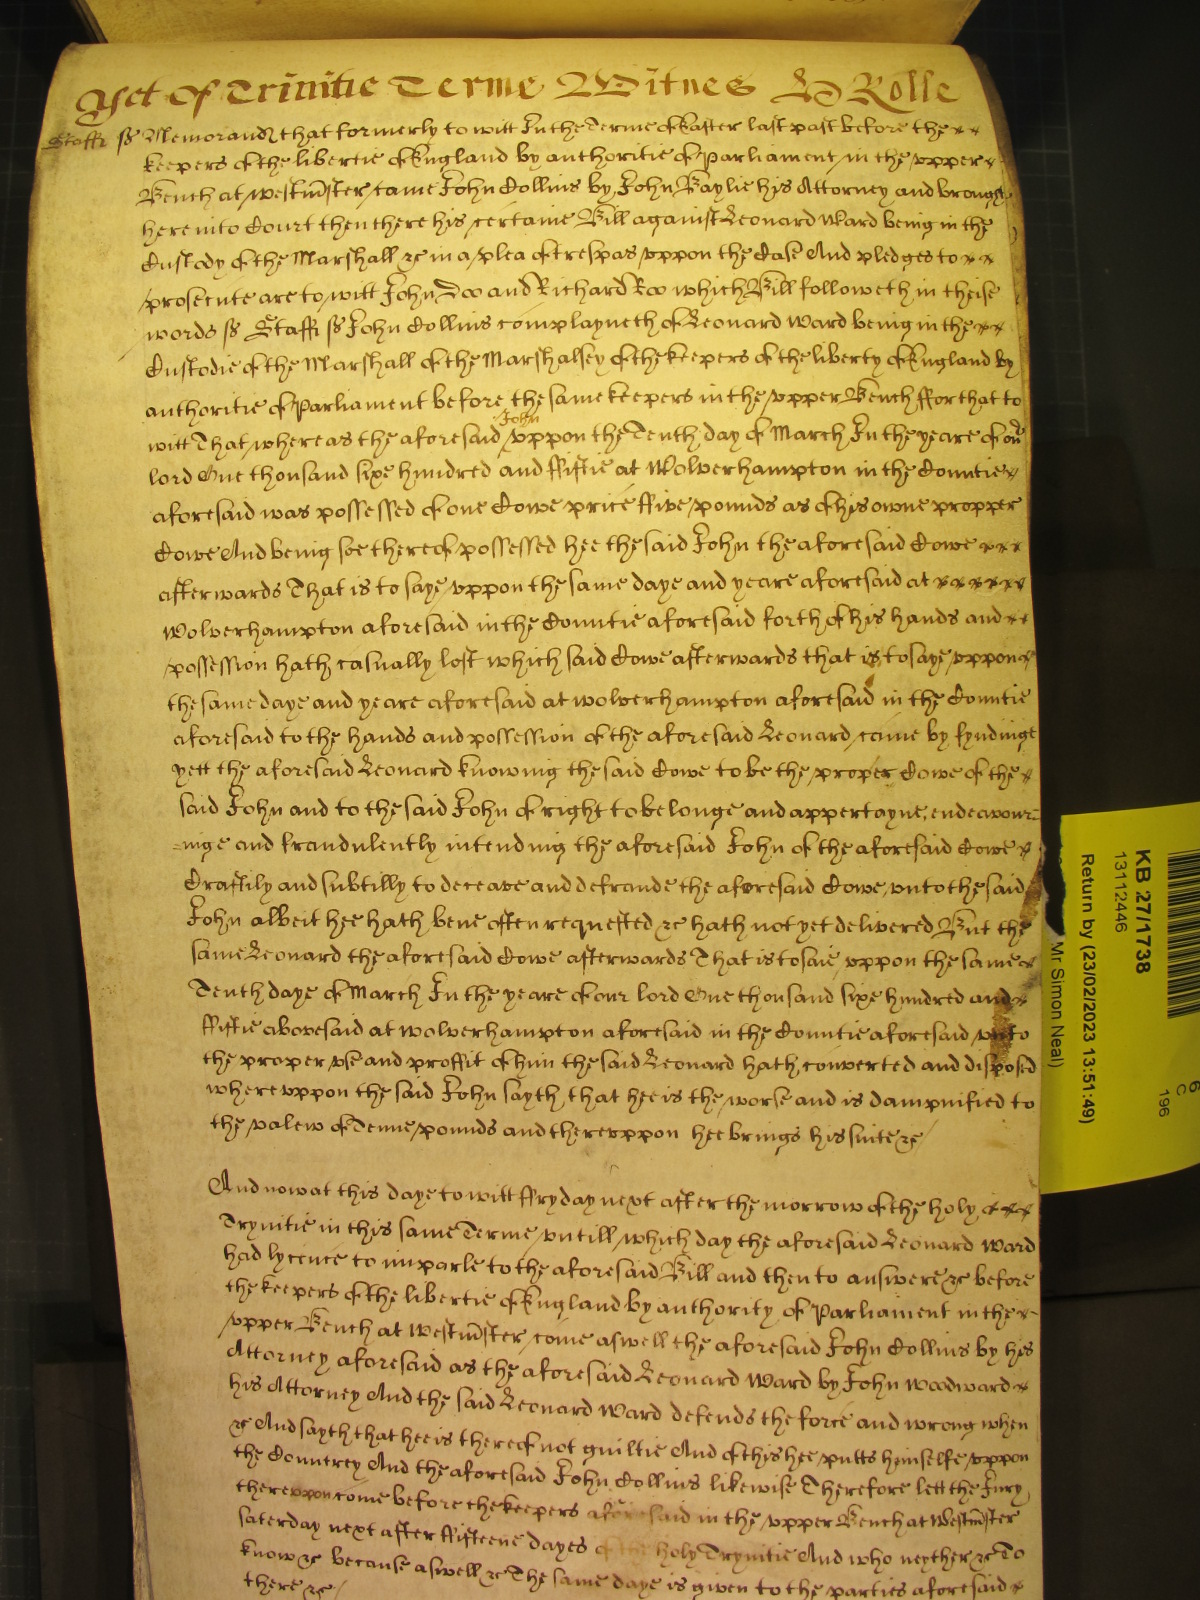 Yet Of Trinitie Terme Witnes Ed Rolle
Staff ss Memorand that formerly to witt In the Terme of Easter last past before the
keepers of the libertie of England by authoritie of Parliament in the vpper
Bench at Westmster came John Collins by John Baylie his Attorney and brought
here into Court then there his certaine Bill against Leonard Ward being in the
Custody of the Marshall &c in a plea of trespas vppon the Case And pledges to
prosecute are to witt John Doo and Richard Roo which Bill followeth in theise
words ss Staff ss John Collins complayneth of Leonard Ward being in the
Custodie of the Marshall of the Marshalsey of the keepers of the liberty of England by
authoritie of Parliament before the same keepers in the vpper Bench ffor that to
John
witt That whereas the aforesaid vppon the Tenth day of March In the yeare of our
lord One thousand sixe hundred and ffiftie at Wolverhampton in the Countie
aforesaid was possessed of one Cowe price ffive pounds as of his owne propper
Cowe And being soe thereof possessed hee the said John the aforesaid Cowe
afterwards That is to saye vppon the same daye and yeare aforesaid at
Wolverhampton aforesaid in the Countie aforesaid forth of his hands and
possession hath casually lost which said Cowe afterwards that is to saye vppon
the same daye and yeare aforesaid at wolverhampton aforesaid in the Countie
aforesaid to the hands and possession of the aforesaid Leonard came by fyndinge
yett the aforesaid Leonard knowing the said Cowe to be the proper Cowe of the
said John and to the said John of right to belonge and appertayne, endeavour
-inge and fraudulently intending the aforesaid John of the aforesaid Cowe
Craftily and subtilly to deceave and defraude the aforesaid Cowe vnto the said
John albeit hee hath bene often requested &c hath not yet delivered But the
same Leonard the aforesaid Cowe afterwards That is to saie vppon the same
Tenth daye of March In the yeare of our lord One thousand sixe hundred and
ffiftie abovesaid at wolverhampton aforesaid in the Countie aforesaid vnto
the proper vse and proffit of him the said Leonard hath converted and disposed
wherevppon the said John sayth that hee is the worse and is dampnified to
the valew of Tenne pounds and therevppon hee brings his suite &c
And now at this daye to witt ffryday next after the morrow of the holy
Trynitie in this same Terme vntill which day the aforesaid Leonard Ward
had lycence to imparle to the aforesaid Bill and then to answere &c before
the keepers of the libertie of England by authority of Parliament in the
vpper Bench at Westmster come aswell the aforesaid John Collins by his
Attorney aforesaid as the aforesaid Leonard Ward by John Woodward
his Attorney And the said Leonard Ward defends the force and wrong when
&c And sayth that hee is thereof not guiltie And of this hee putts himselfe vppon
the Countrey And the aforesaid John Collins likewise Therefore lett the Jury
therevppon come before the keepers aforesaid in the vpper Bench at Westmster
saterday next after ffifteene dayes of the holy Trynitie And who neyther &c To
know &c because aswell &c The same daye is given to the parties aforesaid
there &c
KB 27/1738
13112446
Return by (23/02/2023 13:51:49)
Mr Simon Neal)
6
C
196